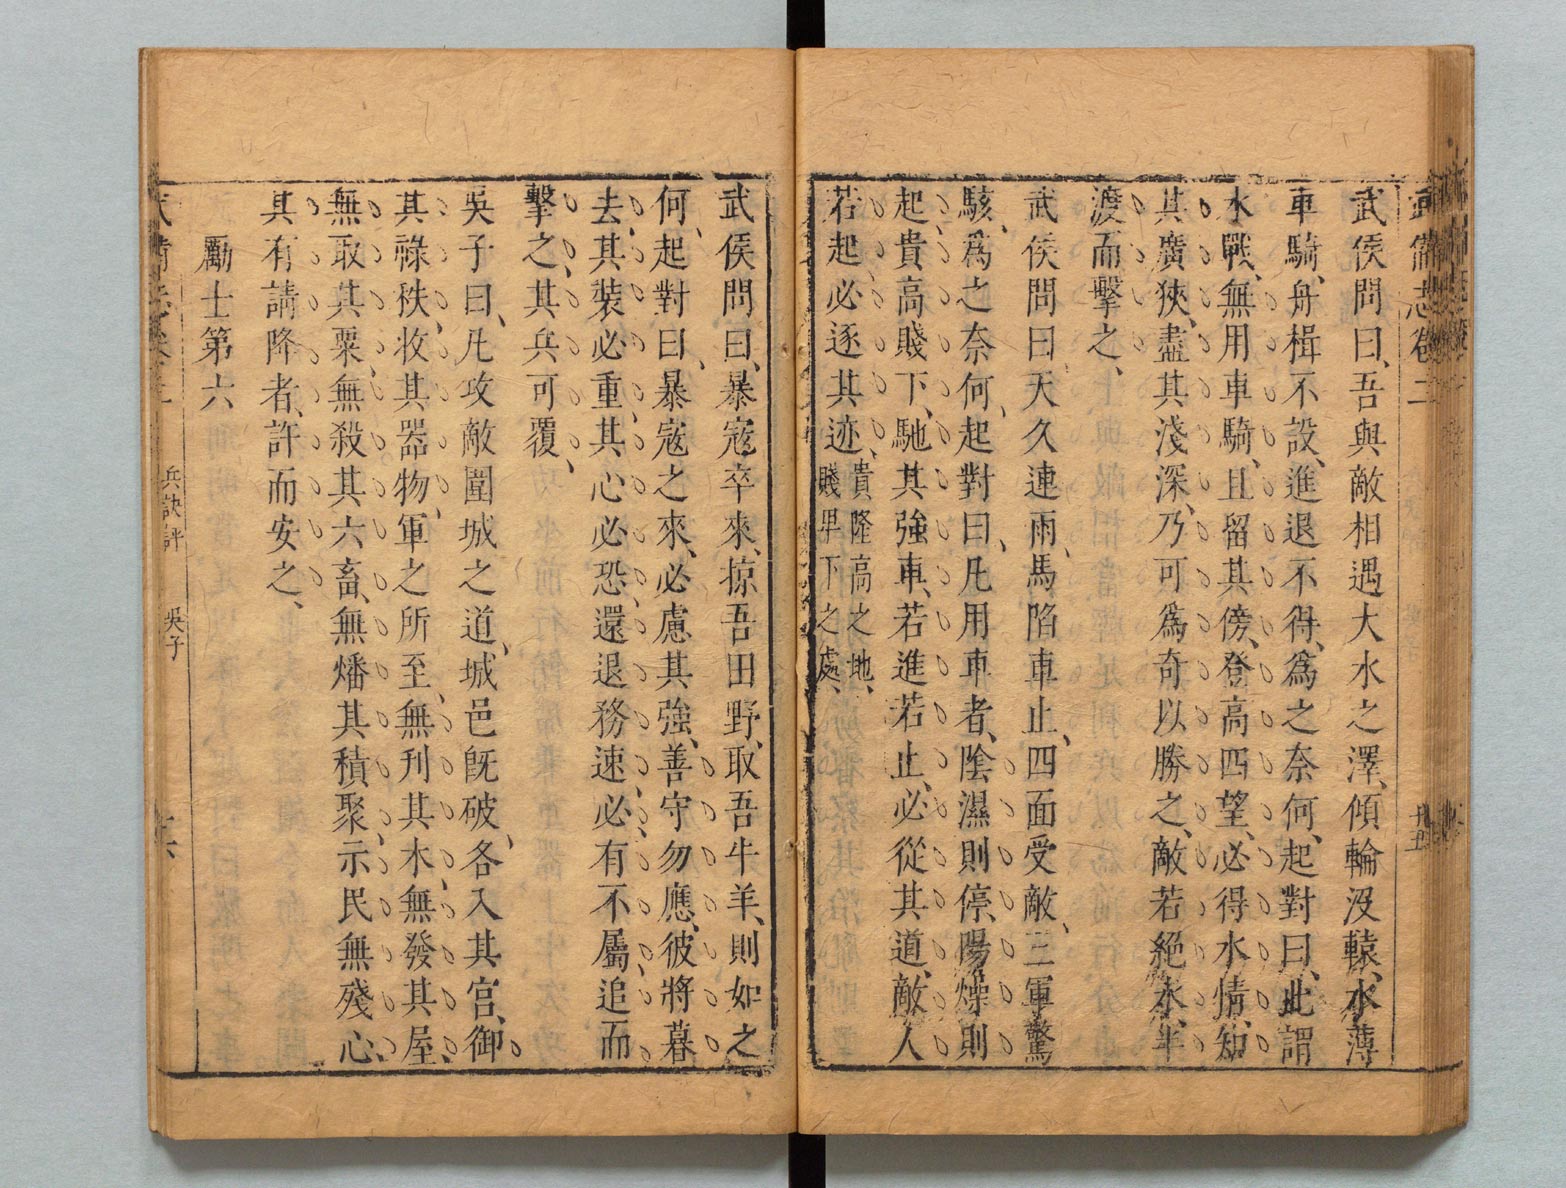 武備志卷二
廿五
武侯問曰、吾與敵相遇、大水之澤、傾輪沒轅、水薄
車騎、舟楫不設、進退不得、爲之奈何、起對曰、此謂
水戰、無用車騎、且留其傍、登高四望、必得水情、知
其廣狹、盡其淺深、乃可爲奇以勝之、敵若絕水、半
渡而擊之、
武侯問曰天久連雨、馬陷車止、四面受敵、三軍驚
駭、爲之奈何、起對曰、凡用車者、陰濕則停、陽燥則
起、貴高賤下、馳其強車、若進若止、必從其道、敵人
若起必逐其迹、貴隆高之地、
賤卑下之處、
武侯問曰、暴寇卒來、掠吾田野、取吾牛羊、則如之
何、起對曰、暴寇之來、必慮其強、善守勿應、彼將暮
去、其裝必重、其心必恐、還退務速、必有不屬、追而
擊之、其兵可覆、
吳子曰、凡攻敵圍城之道、城邑旣破、各入其宮、御
其祿秩、收其器物、軍之所至、無刊其木、無發其屋、
無取其粟、無殺其六畜、無燔其積聚、示民無殘心、
其有請降者、許而安之、
勵士第六
武備志卷二
兵訣評
吳子